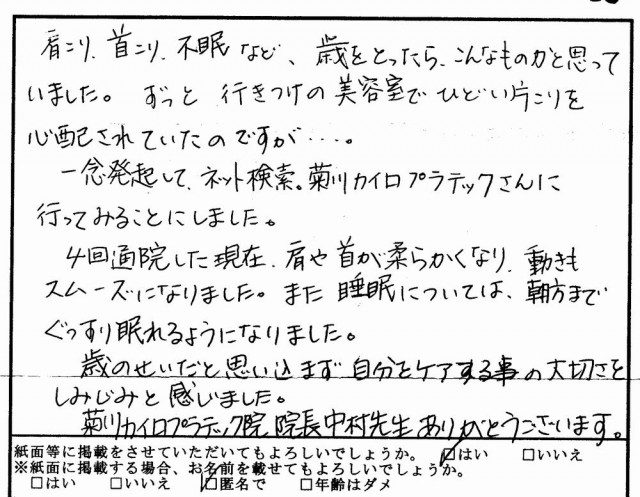 肩こり、首こり、不眠など、歳をとったら、こんなものかと思って
いました。ずっと行きつけの美容室でひどい片こりを
心配されていたのですが・・・・。
一念発起して、ネット検索。菊川カイロプラテックさんに
行ってみることにしました。
4回通院した現在、肩や首が柔らかくなり、動きも
スムーズになりました。また睡眠については、朝方まで
ぐっすり眠れるようになりました。
歳のせいだと思い込まず自分をケアする事の大切さを
しみじみと感じました。
菊川カイロプラテック院 院長中村先生ありがとうございます。
紙面等に掲載をさせていただいてもよろしいでしょうか。 ☑はい □いいえ
※紙面に掲載する場合、お名前を載せてもよろしいでしょうか。
□はい □いいえ ☑匿名で □年齢はダメ